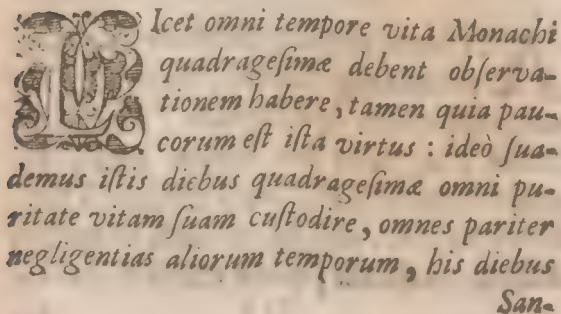 LIcet omni tempore vita Monachi
quadrageſimæ debent obſerva-
tionem habere, tamen quia pau-
corum eſt iſta virtus : ideò ſua-
demus iſtis diebus quadrageſimæ omni pu-
ritate vitam ſuam cuſtodire, omnes pariter
negligentias aliorum temporum, his diebus
San-